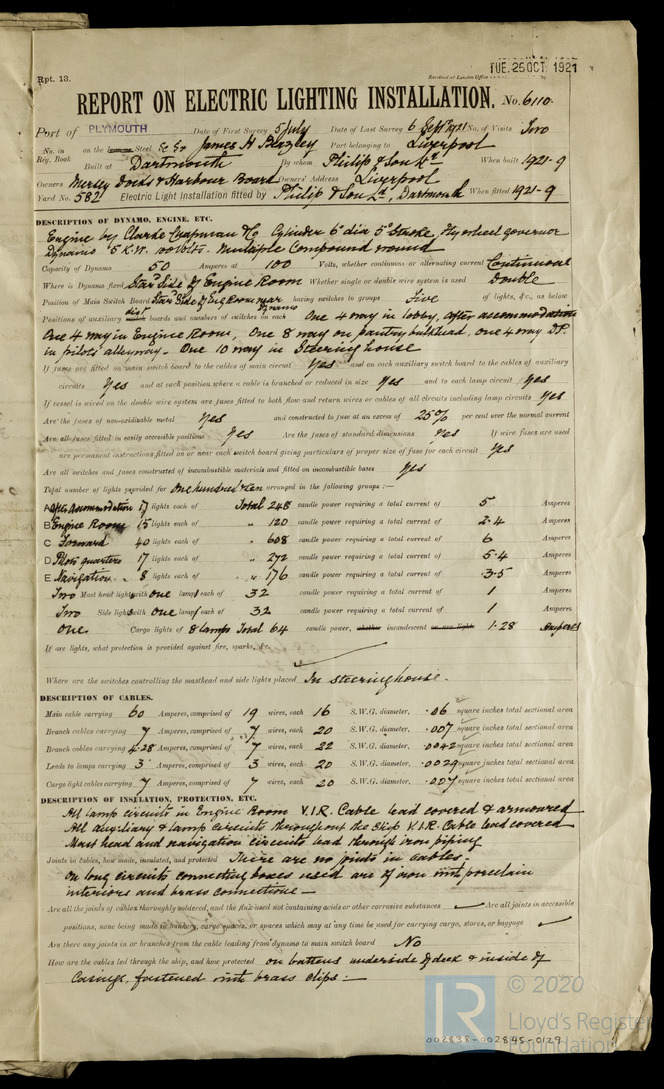 Rpt. 13.
Received at London Office
TUE. 25 OCT. 1921
REPORT ON ELECTRIC LIGHTING INSTALLATION. No. 6110.
Port of PLYMOUTH Date of First Survey 5 July Date of Last Survey 6 Sept 1921 No. of Visits Two
No. in Reg. Book on the Iron Steel Sc Sr James H Beazley Port belonging to Liverpool
Built at Dartmouth By whom Philip & Son Ld When built 1921-9
Owners Mersey Docks & Harbour Board Owners' Address Liverpool
Yard No. 582 Electric Light Installation fitted by Philip & Son Ld, Dartmouth When fitted 1921-9
DESCRIPTION OF DYNAMO, ENGINE, ETC.
Engine by Clarke Chapman & Co Cylinder 6" dia 5" Stroke, Flywheel governor
Dynamo 5 K.W. 100 Volts. Multiple Compound wound
Capacity of Dynamo 50 Amperes at 100 Volts, whether continuous or alternating current Continuous
Where is Dynamo fixed Star Side of Engine Room Whether single or double wire system is used Double
Position of Main Switch Board Star Side of Eng Room near Dynamo having switches to groups Five of lights, &c., as below
Positions of auxiliary switch dist boards and numbers of switches on each One 4 way in lobby, after accommodation
One 4 way in Engine Room, One 8 way on pantry bulkhead, one 4 way D.P.
in pilots' alleyway - One 10 way in Steering house
If fuses are fitted on main switch board to the cables of main circuit Yes and on each auxiliary switch board to the cables of auxiliary
circuits Yes and at each position where a cable is branched or reduced in size Yes and to each lamp circuit Yes
If vessel is wired on the double wire system are fuses fitted to both flow and return wires or cables of all circuits including lamp circuits Yes
Are the fuses of non-oxidizable metal Yes and constructed to fuse at an excess of 25% per cent over the normal current
Are all fuses fitted in easily accessible positions Yes Are the fuses of standard dimensions Yes If wire fuses are used
are permanent instructions fitted on or near each switch board giving particulars of proper size of fuse for each circuit Yes
Are all switches and fuses constructed of incombustible materials and fitted on incombustible bases Yes
Total number of lights provided for One hundred & ten arranged in the following groups :—
A After Accommodation 17 lights each of Total 248 candle power requiring a total current of 5 Amperes
B Engine Room 15 lights each of " 120 candle power requiring a total current of 2.4 Amperes
C Forward 40 lights each of " 608 candle power requiring a total current of 6 Amperes
D Pilots quarters 17 lights each of " 272 candle power requiring a total current of 5.4 Amperes
E Navigation 8 lights each of " 176 candle power requiring a total current of 3.5 Amperes
Two Mast head lights with one lamp each of 32 candle power requiring a total current of 1 Amperes
Two Side lights with one lamp each of 32 candle power requiring a total current of 1 Amperes
One Cargo lights of 8 lamps Total 64 candle power, whether incandescent or arc lights 1.28 Amperes
If arc lights, what protection is provided against fire, sparks, &c.
Where are the switches controlling the masthead and side lights placed In steering house.
DESCRIPTION OF CABLES.
Main cable carrying 60 Amperes, comprised of 19 wires, each 16 S.W.G. diameter, .06 square inches total sectional area
Branch cables carrying 7 Amperes, comprised of 7 wires, each 20 S.W.G. diameter, .007 square inches total sectional area
Branch cables carrying 4.28 Amperes, comprised of 7 wires, each 22 S.W.G. diameter, .0042 square inches total sectional area
Leads to lamps carrying 3 Amperes, comprised of 3 wires, each 20 S.W.G. diameter, .0029 square inches total sectional area
Cargo light cables carrying 7 Amperes, comprised of 7 wires, each 20 S.W.G. diameter, .007 square inches total sectional area
DESCRIPTION OF INSULATION, PROTECTION, ETC.
All lamp circuits in Engine Room V.I.R. Cable lead covered & armoured
All auxiliary & lamp circuits throughout the ship V.I.R. Cable lead covered
Mast head and navigation circuits lead through iron piping
Joints in cables, how made, insulated, and protected There are no joints in cables.
On long circuits connecting boxes used are of iron with porcelain
interiors and brass connections —
Are all the joints of cables thoroughly soldered, and the flux used not containing acids or other corrosive substances Are all joints in accessible
positions, none being made in bunkers, cargo spaces, or spaces which may at any time be used for carrying cargo, stores, or baggage
Are there any joints in or branches from the cable leading from dynamo to main switch board No
How are the cables led through the ship, and how protected on battens underside of deck & inside of
Casings, fastened with brass clips :—
© 2020
Lloyd's Register
Foundation
002838-002845-0129